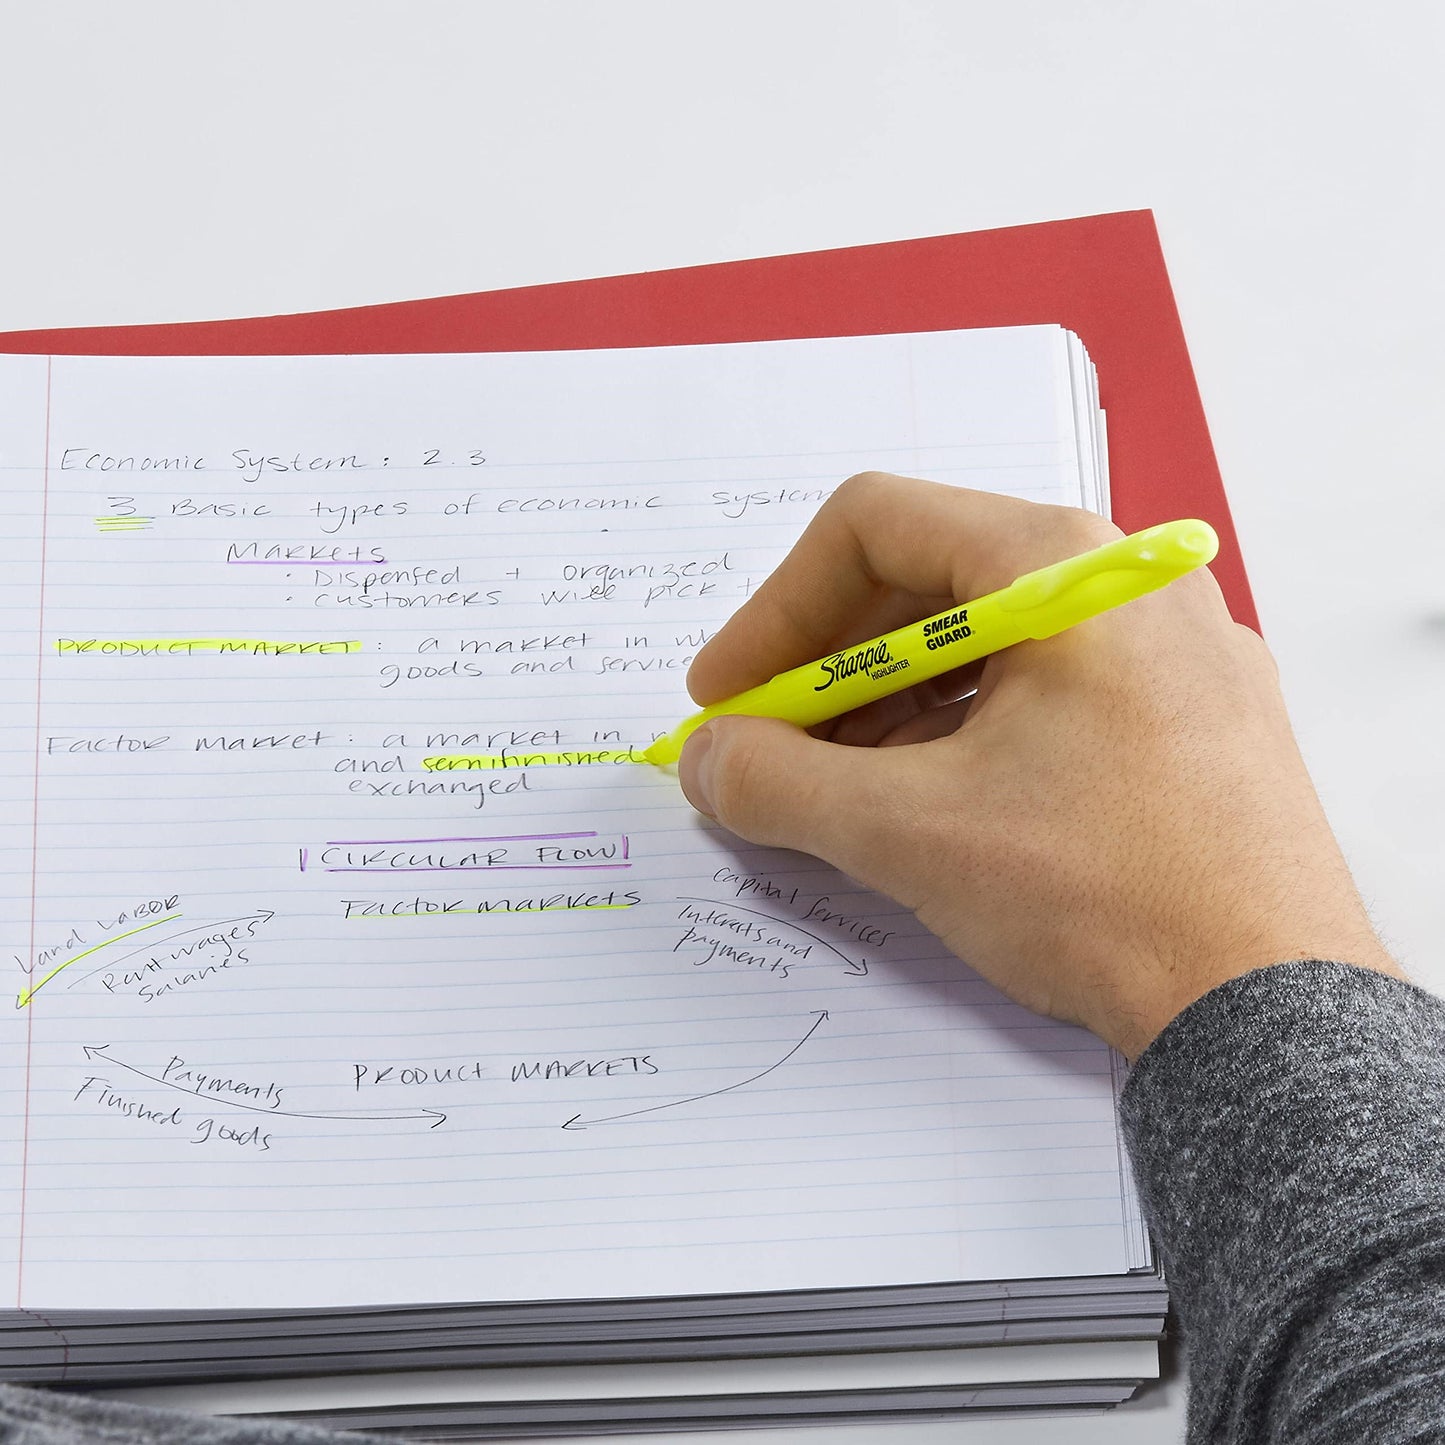 Economic System: 2.3
3 Basic types of economic system
Markets
• Dispensed + organized
• customers will pick
PRODUCT MARKET: a market in
goods and service
Factor market: a market in
and semifinished
exchanged
CIRCULAR FLOW
Factor markets
Land Labor
Rent wages
Salaries
Capital Services
Interests and
payments
PRODUCT MARKETS
Payments
Finished goods
Sharpie®
HIGHLIGHTER
SMEAR
GUARD®